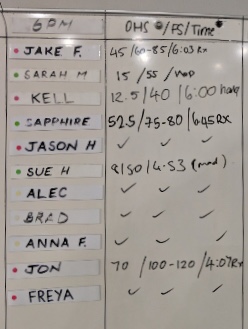 6PM OHS /FS/Time
JAKE F. 45/60-85/6:03 Rx
SARAH M 15/55/
KELL 12.5/40/6:00
SAPPHIRE 52.5/75-80/6:45Rx
JASON H ✓ ✓ ✓
SUE H 9/50/4:53 (mod)
ALEC ✓ ✓ ✓
BRAD ✓ ✓ ✓
ANNA F. ✓ ✓ ✓
JON 70/100-120/4:07Rx
FREYA ✓ ✓ ✓